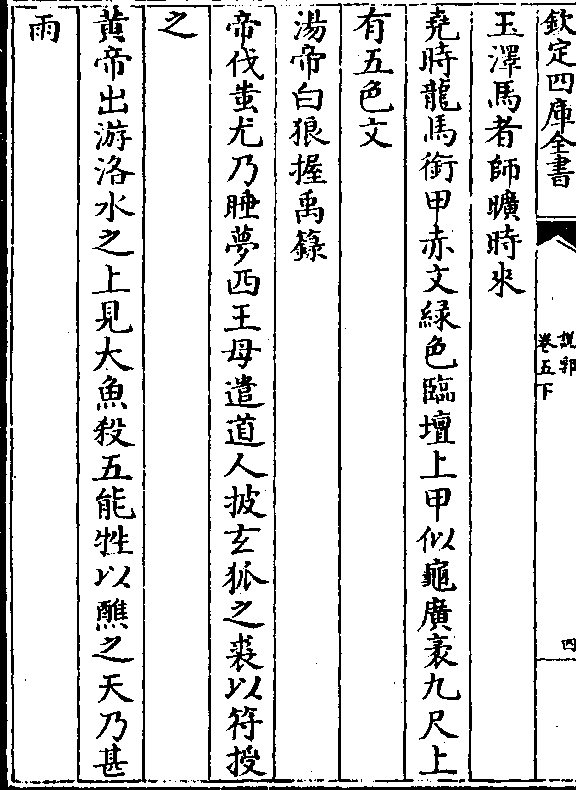 欽定四庫全書
說郛
卷五下
四
玉澤馬者師曠時來
堯時龍馬銜甲赤文綠色臨壇上甲似龜廣袤九尺上
有五色文
湯帝白狼握禹籙
帝伐蚩尤乃睡夢西王母遣道人披玄狐之裘以符授
之
黄帝出游洛水之上見大魚殺五能牲以醮之天乃甚
雨